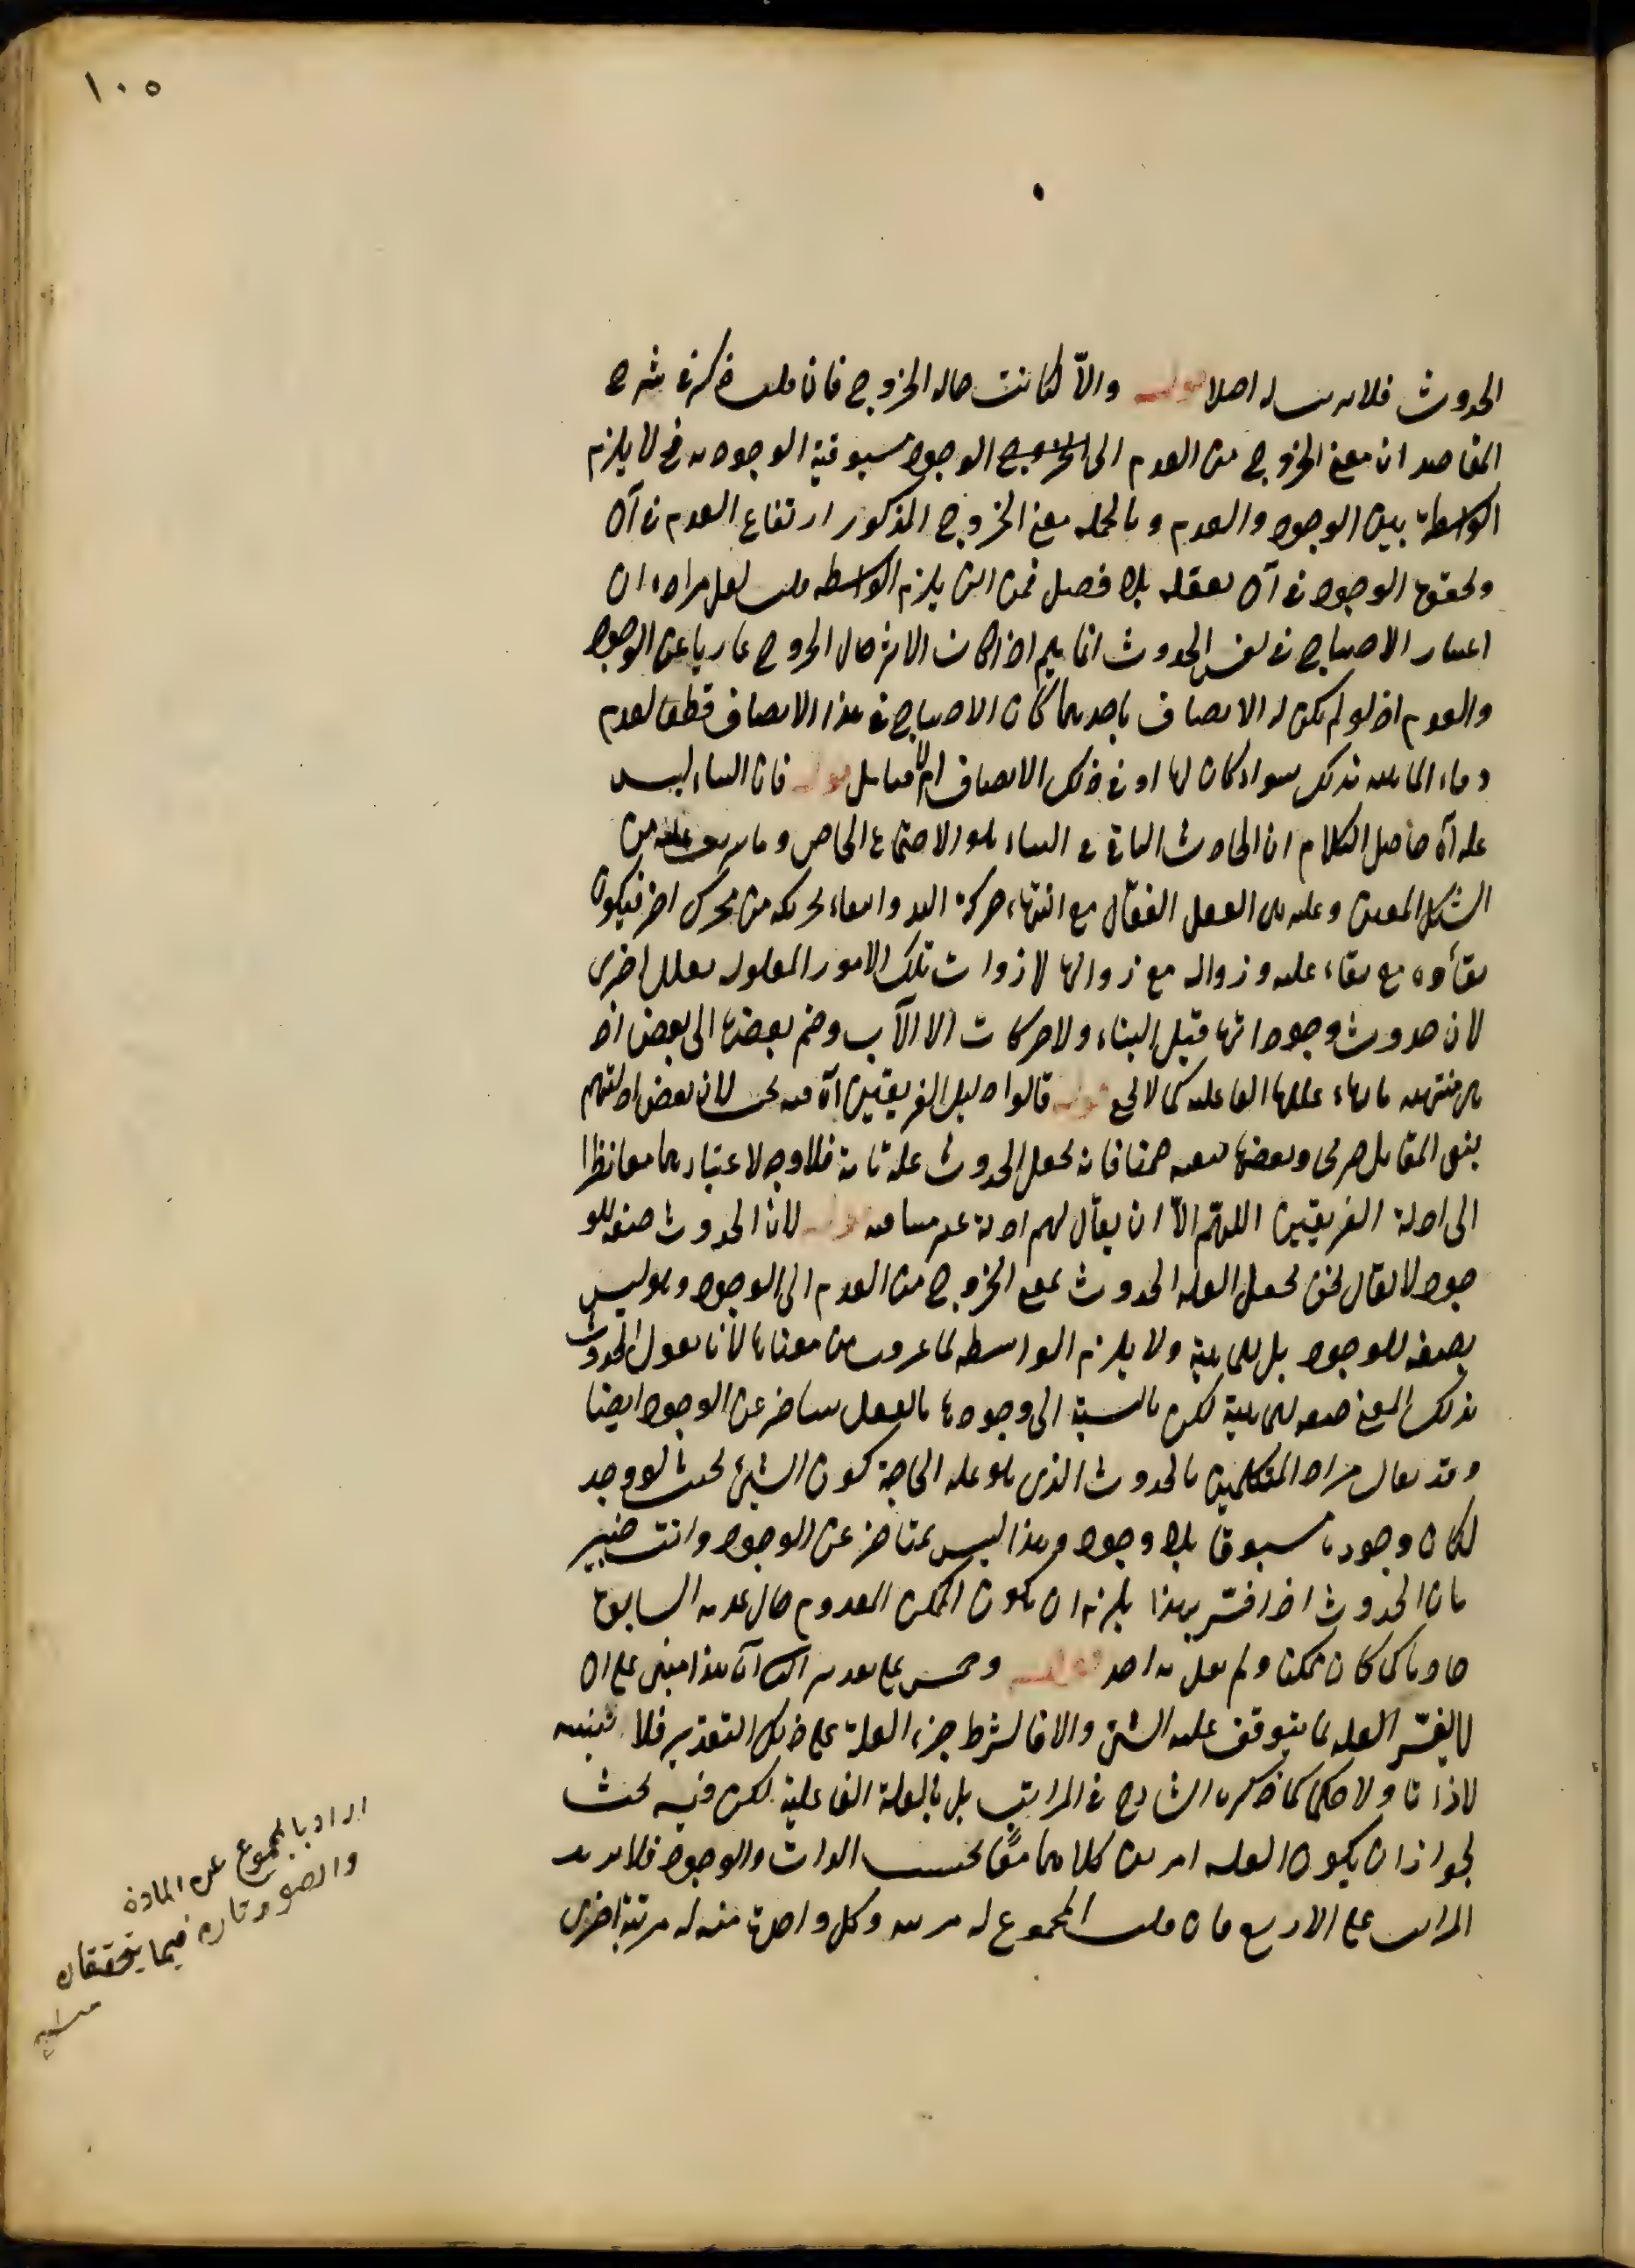 ١٠٥
الحدوث فلا اصلا قوله والّا لكانت حاله الخروج فان قلت ذكر في شرح
المقاصد ان معنى الخروج من العدم الى الوجود مسبوقية الوجود به فح لا يلزم
الواسطة بين الوجود والعدم وبالجمله معنى الخروج المذكور ارتفاع العدم في آن
وتحقق الوجود في آن يعقله بلا فصل فمن اين يلزم الواسطه قلت لعل مراده ان
اعتبار الاحتياج في نفس الحدوث انما يتم اذا كان الاثر حال الخروج عاريا عن الوجود
والعدم اذ لو لم يكن له الاتصاف باحدهما كان الاحتياج في هذا الاتصاف قطعا لعدم
بذلك سواء كان لها او في ذلك الاتصاف ام لا فتأمل قوله فان البناء ليس
علة آه حاصل الكلام ان الحادث الباقي في البناء هو الاجتماع الخاص وما يترتب عليه من
الشكل المعين وعلته هي العقل الفعّال مع انتهاء حركة اليد وانتهاء تحريكه من محرك اخر فيكون
بقاؤه مع بقاء علته وزواله مع زوالها لا ذوات تلك الامور المعلوله بعلل اخرى
لان حدوث وجوداتها قبل البناء ولا حركات الالآت وضم بعضها الى بعض اذ
هي منتهيه بانتهاء عللها الفاعليه كما لا يخفى قوله قالوا دليل الفريقين آه فيه بحث لان بعض ادلتهم
ينفى المقابل صريحا وبعضها ضمنا فانه بجعل الحدوث علة تامة فلا وجه لاعتبارهما معا نظرا
الى ادلة الفريقين اللهمّ الّا ان يقال لهم ادلة غير متنافيه قوله لان الحدوث صفة للو
جود لا يقال نحن نجعل العله الحدوث بمعنى الخروج من العدم الى الوجود وهو ليس
بصفه للوجود بل للماهية ولا يلزم الواسطه لما عرفت من معناها لأنا نقول الحدوث
بذلك المعنى صفه للماهية لكن بالنسبة الى وجودها بالفعل متأخر عن الوجود ايضا
وقد يقال مراد المتكلمين بالحدوث الذي هو علة الحاجة كون الشئ بحيث لو وجد
لكان وجوده مسبوقا بلا وجود وهذا ليس بمتاخر عن الوجود وانت خبير
بان الحدوث اذا فسّر بهذا يلزم ان يكون الممكن المعدوم حال عدمه السابق
حادثا كما كان ممكنا ولم يقل به احد قوله آه هذا مبنى على ان
لا يفسّر العله بما يتوقف عليه الشئ والا فالشرط جزء العلة على ذلك التقدير فلا
لا ذاتا ولا حكما كما ذكره الشارح في المراتب بل بالعلة الفاعلية لكن فيه بحث
لجواز ان يكون العله امرين كلاهما معًا بحسب الذات والوجود فلا يزيد
المراتب على الاربع فان قلت المجموع له مرتبه وكل واحدة منه له مرتبة اخرى
اراد بالمجموع عن المادة
والصورتان فيما يتحققان
منه